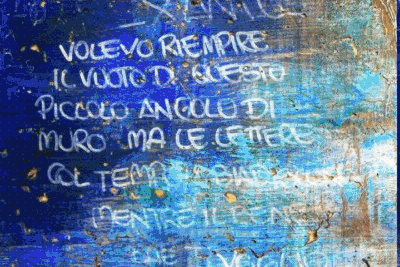 VOLEVO RIEMPIRE
IL VUOTO DI QUESTO
PICCOLO ANGOLO DI
MURO MA LE LETTERE
COL TEMPO
MENTRE IL BENE
CHE TI VOGLIO